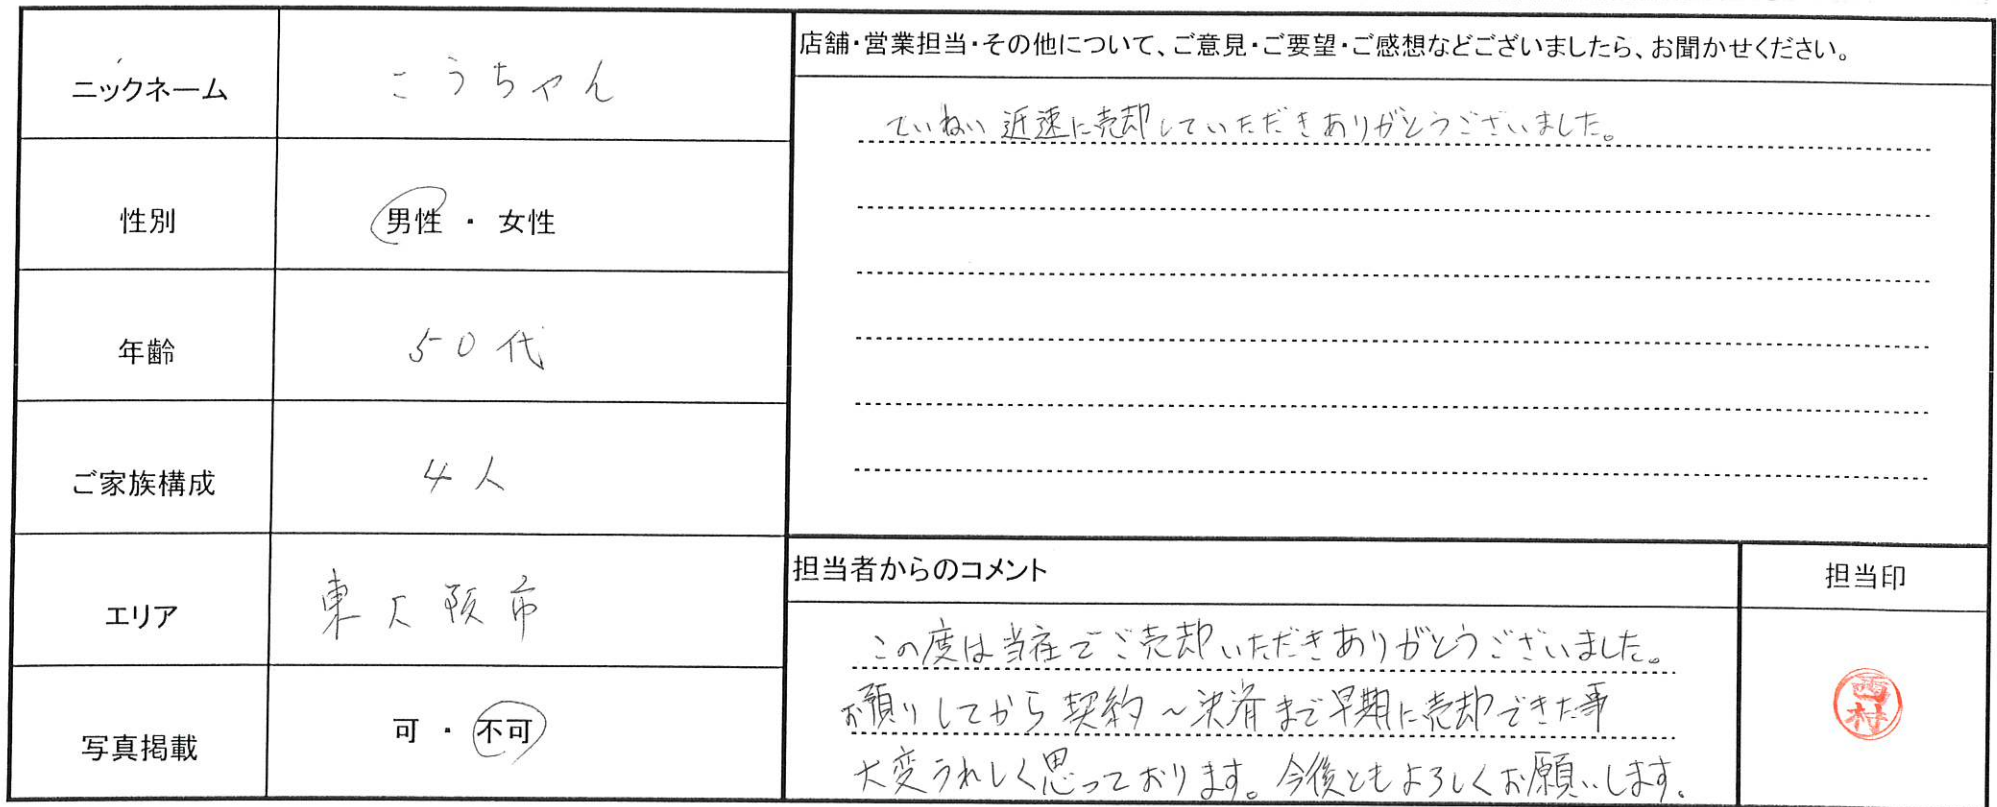 ニックネーム
こうちゃん
性別
男性 ・ 女性
年齢
50代
ご家族構成
4人
エリア
東大阪市
写真掲載
可 ・ 不可
店舗・営業担当・その他について、ご意見・ご要望・ご感想などございましたら、お聞かせください。
ていねい 近速に売却していただきありがとうございました。
担当者からのコメント
この度は当社でご売却いただきありがとうございました。
お預りしてから契約～決済まで早期に売却できた事
大変うれしく思っております。今後ともよろしくお願いします。
担当印
西村